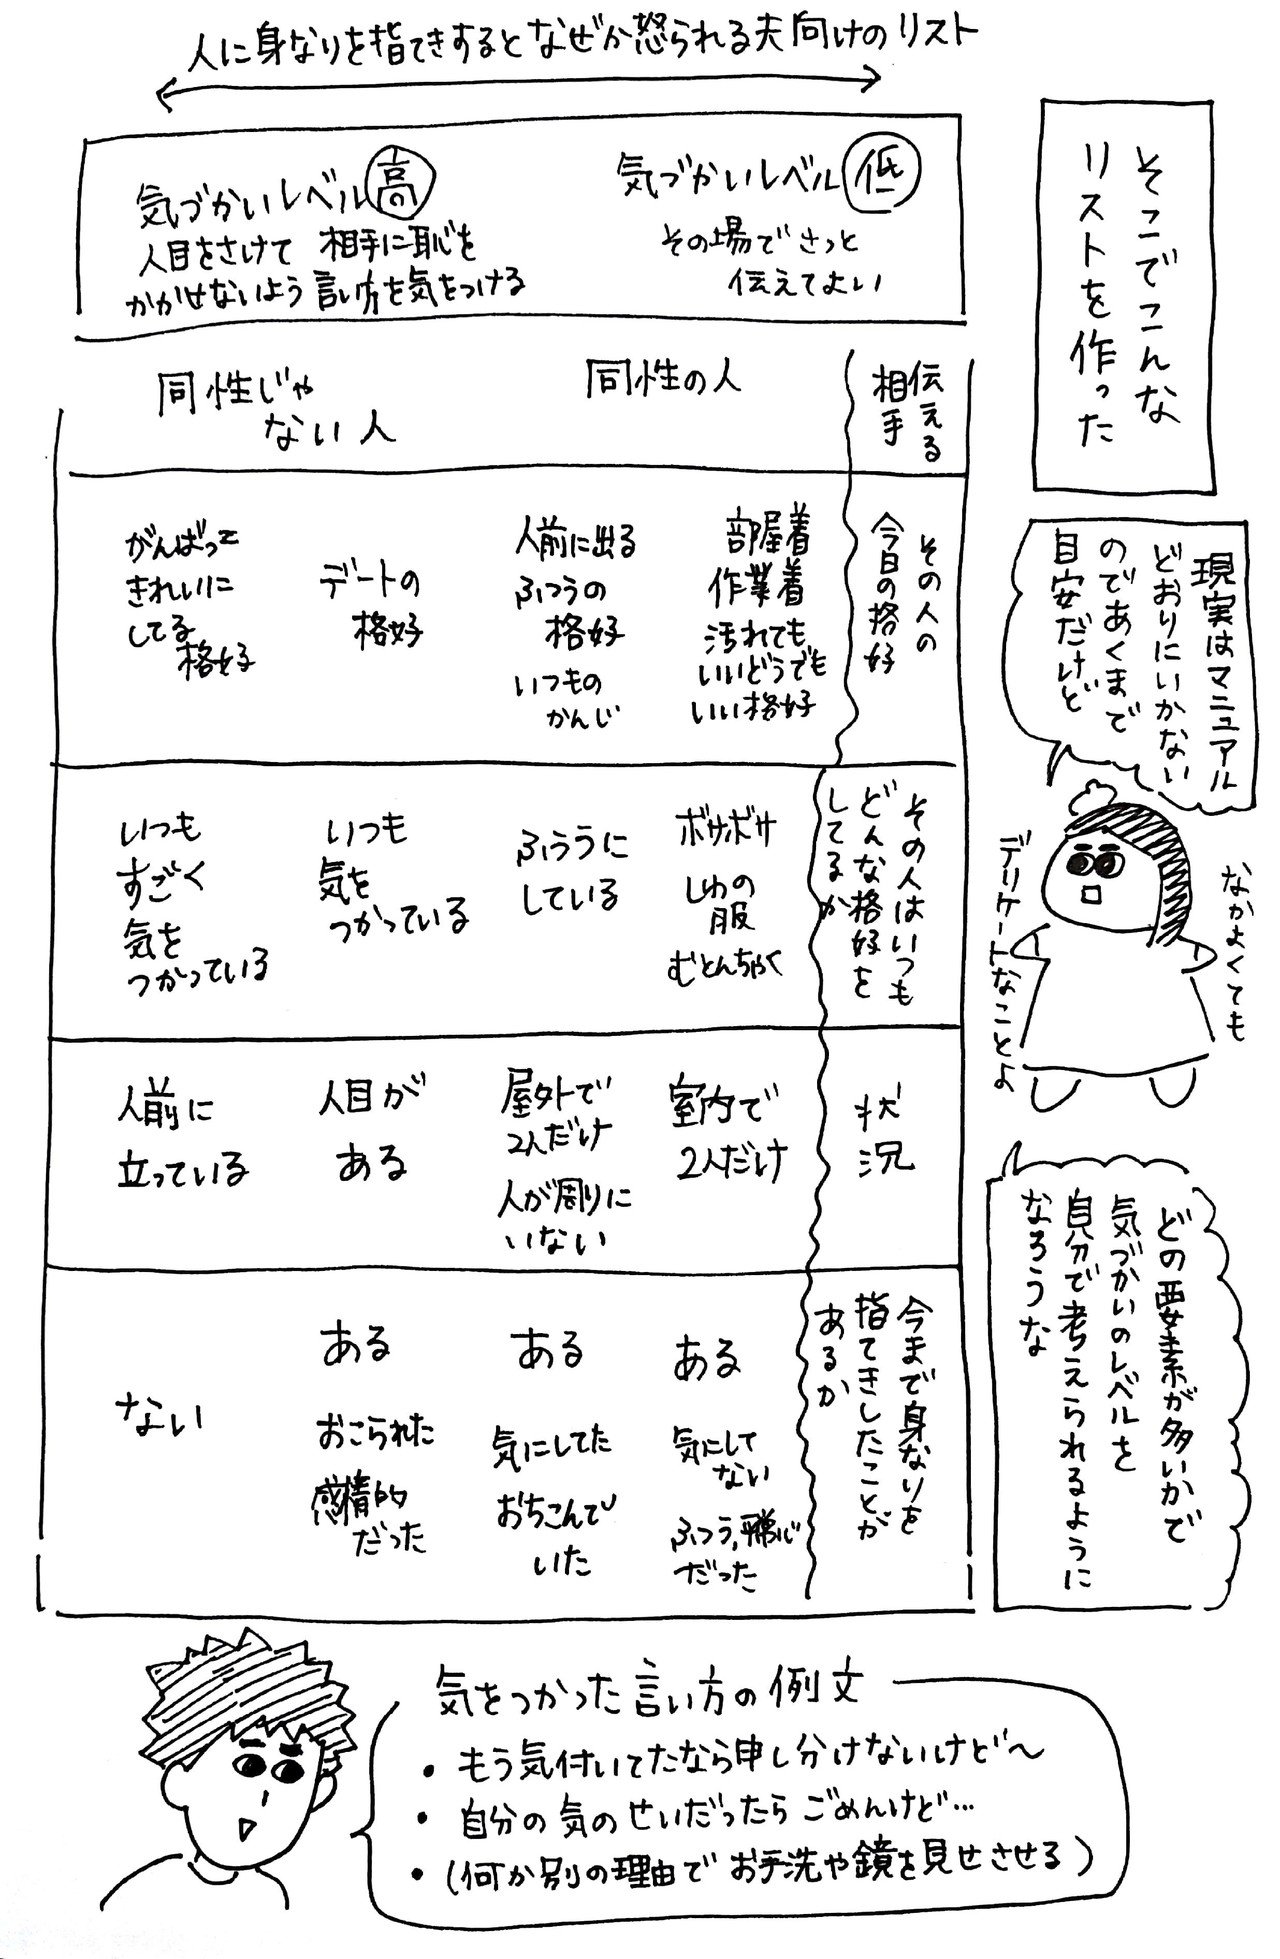 人に身なりを指てきするとなぜか怒られる夫向けのリスト
そこでこんな
リストを作った
気づかいレベル高
人目をさけて 相手に恥を
かかせないよう 言い方を気をつける
気づかいレベル低
その場でさっと
伝えてよい
伝える
相手
同性の人
同性じゃ
ない人
その人の
今日の格好
部屋着
作業着
汚れても
いいどうでも
いい格好
人前に出る
ふつうの
格好
いつもの
かんじ
デートの
格好
がんばって
きれいに
してる
格好
その人はいつも
どんな格好を
してるか
ボサボサ
しわの
服
むとんちゃく
ふつうに
している
いつも
気を
つかっている
いつも
すごく
気を
つかっている
状況
室内で
2人だけ
屋外で
2人だけ
人が周りに
いない
人目が
ある
人前に
立っている
今まで身なりを
指てきしたことが
あるか
ある
気にして
ない
ふつう,平常心
だった
ある
気にしてた
おちこんで
いた
ある
おこられた
感情的
だった
ない
現実はマニュアル
どおりにいかない
のであくまで
目安だけど
なかよくても
デリケートなことよ
どの要素が多いかで
気づかいのレベルを
自分で考えられるように
なろうな
気をつかった言い方の例文
・もう気付いてたなら申し分けないけど〜
・自分の気のせいだったらごめんけど…
・(何か別の理由でお手洗や鏡を見せさせる)